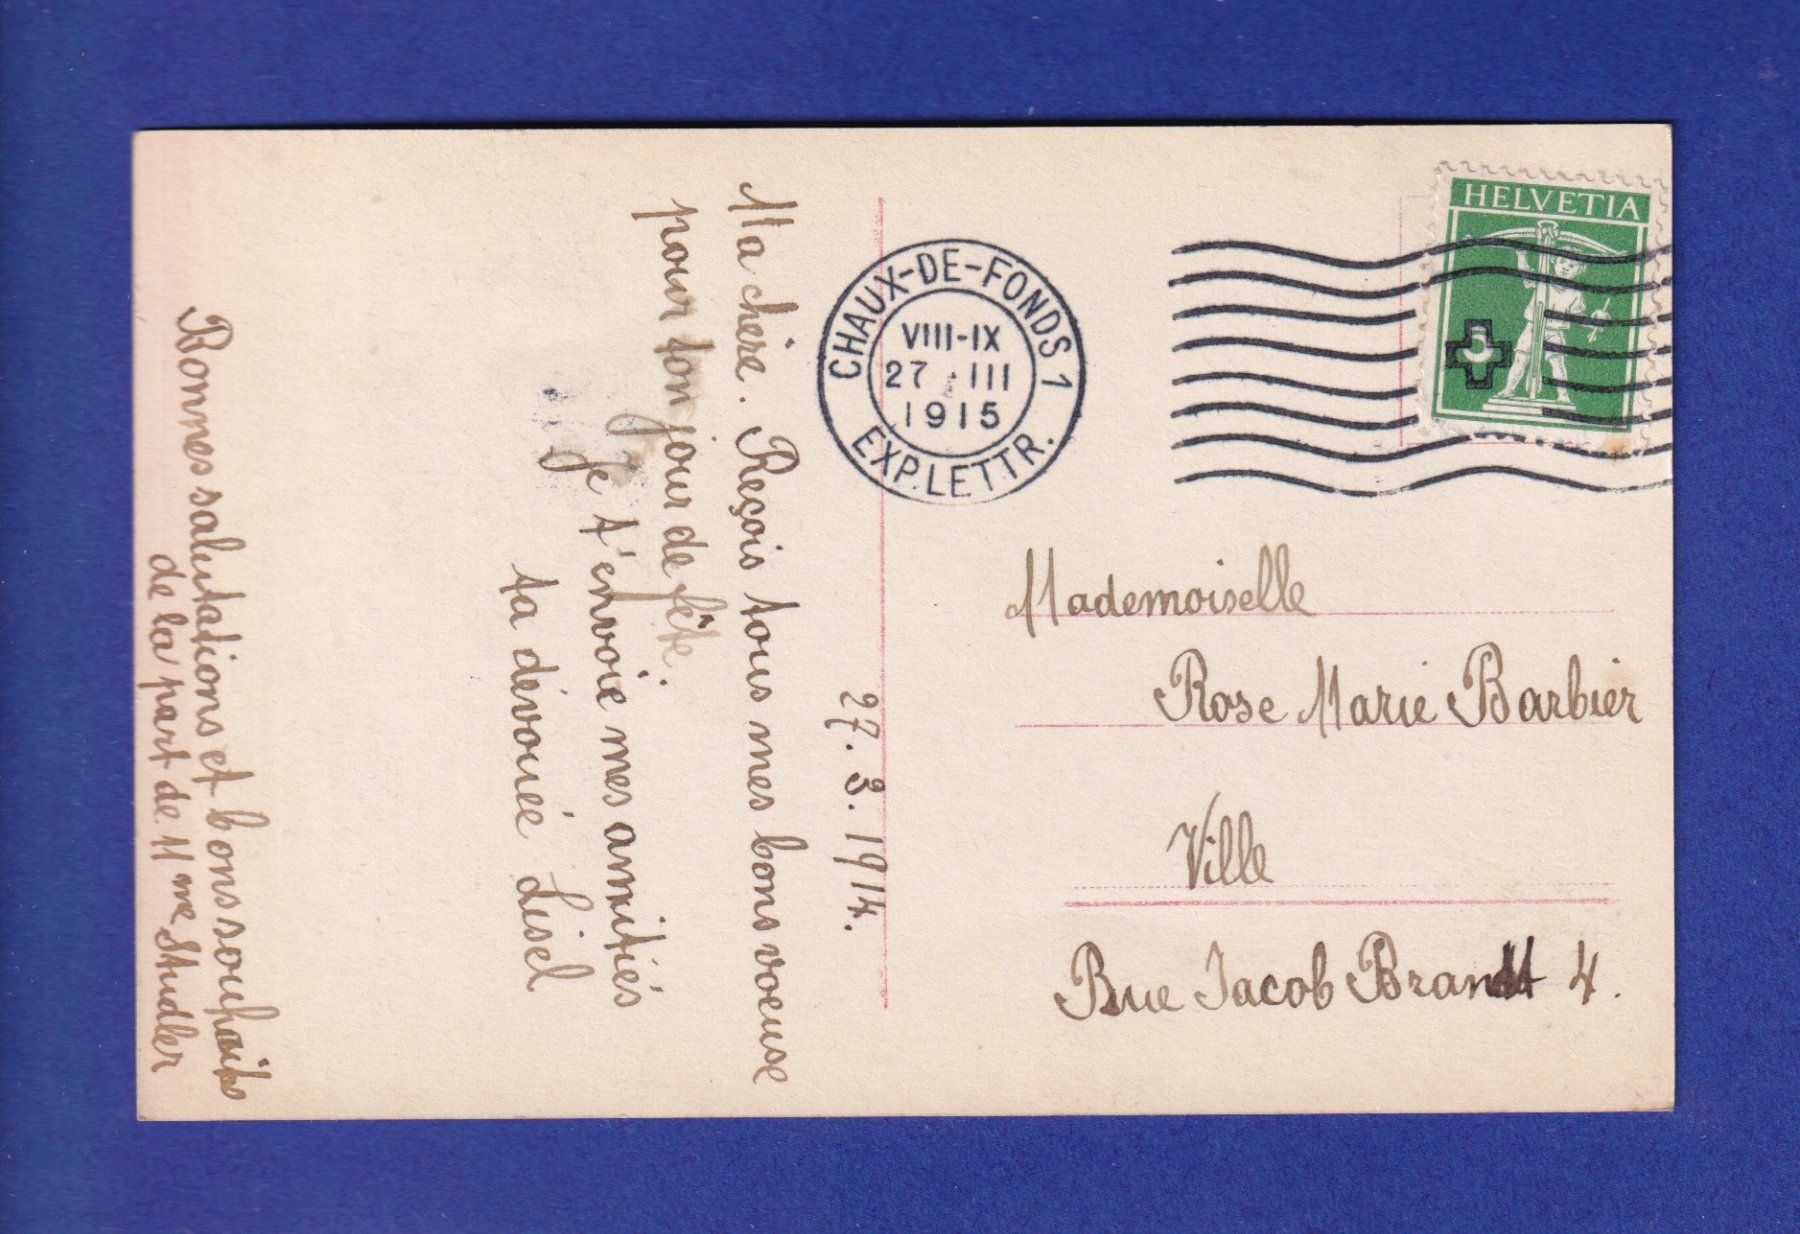 27. 3. 1914.
Ma chère. Reçois tous mes bons voeuse
pour ton jour de fête.
Je t'envoie mes amitiés
ta dévouée Lisel
Bonnes salutations et bons souhaits
de la part de Mme Studler
HELVETIA
5
CHAUX-DE-FONDS 1
VIII-IX
27 III
1915
EXP. LETTR.
Mademoiselle
Rose Marie Barbier
Ville
Rue Jacob Brandt 4.